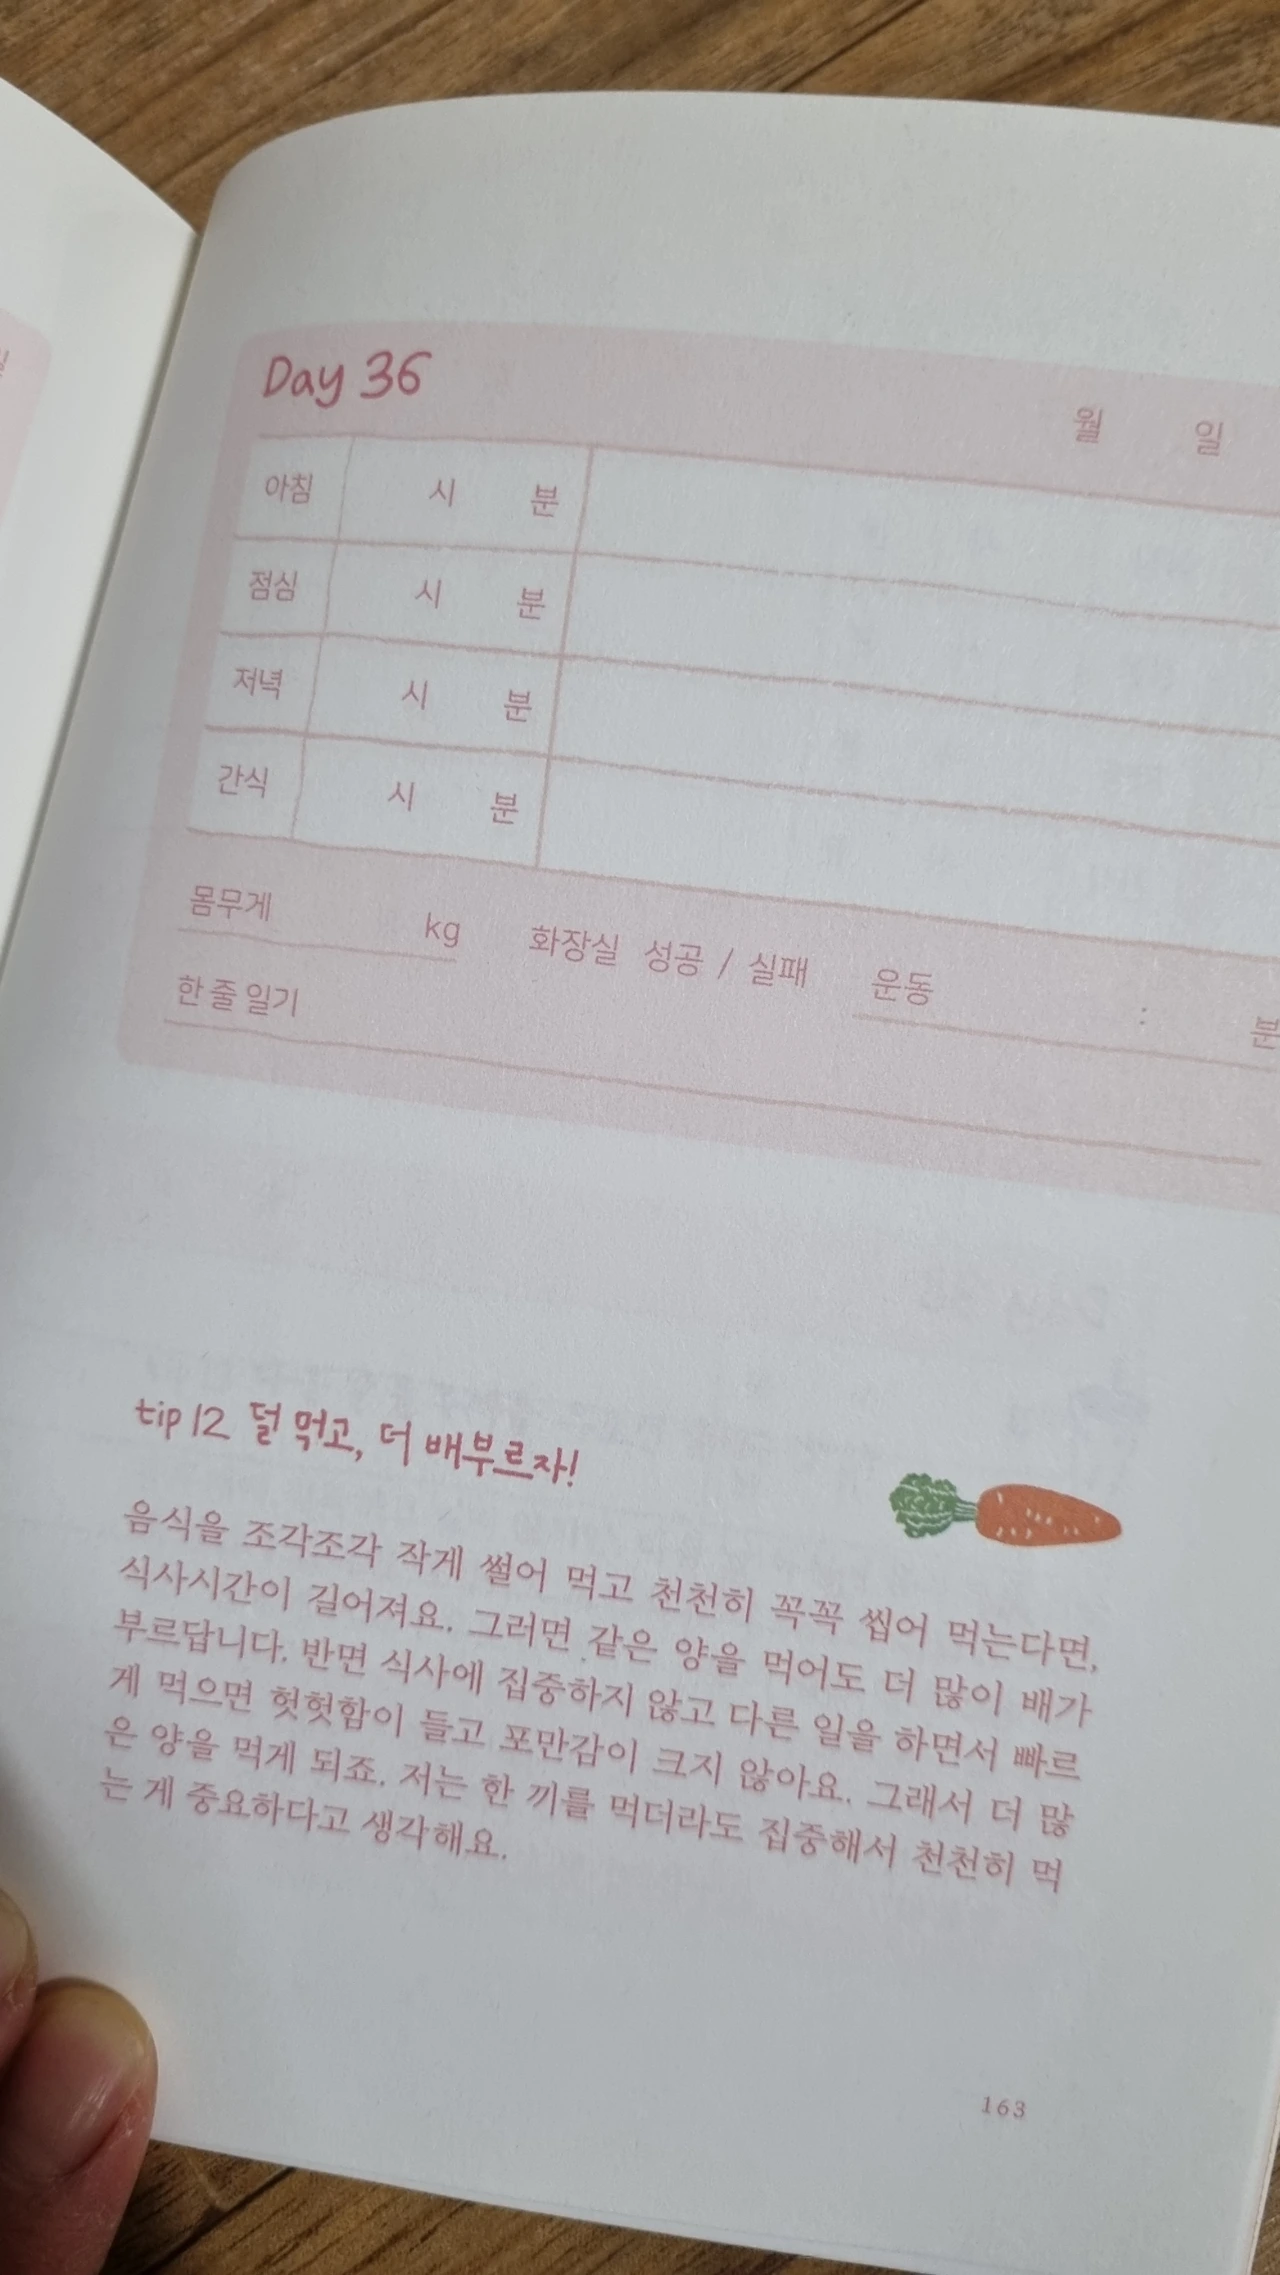 Day 36
월 일
아침 시 분
점심 시 분
저녁 시 분
간식 시 분
몸무게 kg 화장실 성공 / 실패 운동 : 분
한 줄 일기
tip 12 덜 먹고, 더 배부르자!
음식을 조각조각 작게 썰어 먹고 천천히 꼭꼭 씹어 먹는다면,
식사시간이 길어져요. 그러면 같은 양을 먹어도 더 많이 배가
부르답니다. 반면 식사에 집중하지 않고 다른 일을 하면서 빠르
게 먹으면 헛헛함이 들고 포만감이 크지 않아요. 그래서 더 많
은 양을 먹게 되죠. 저는 한 끼를 먹더라도 집중해서 천천히 먹
는 게 중요하다고 생각해요.
163